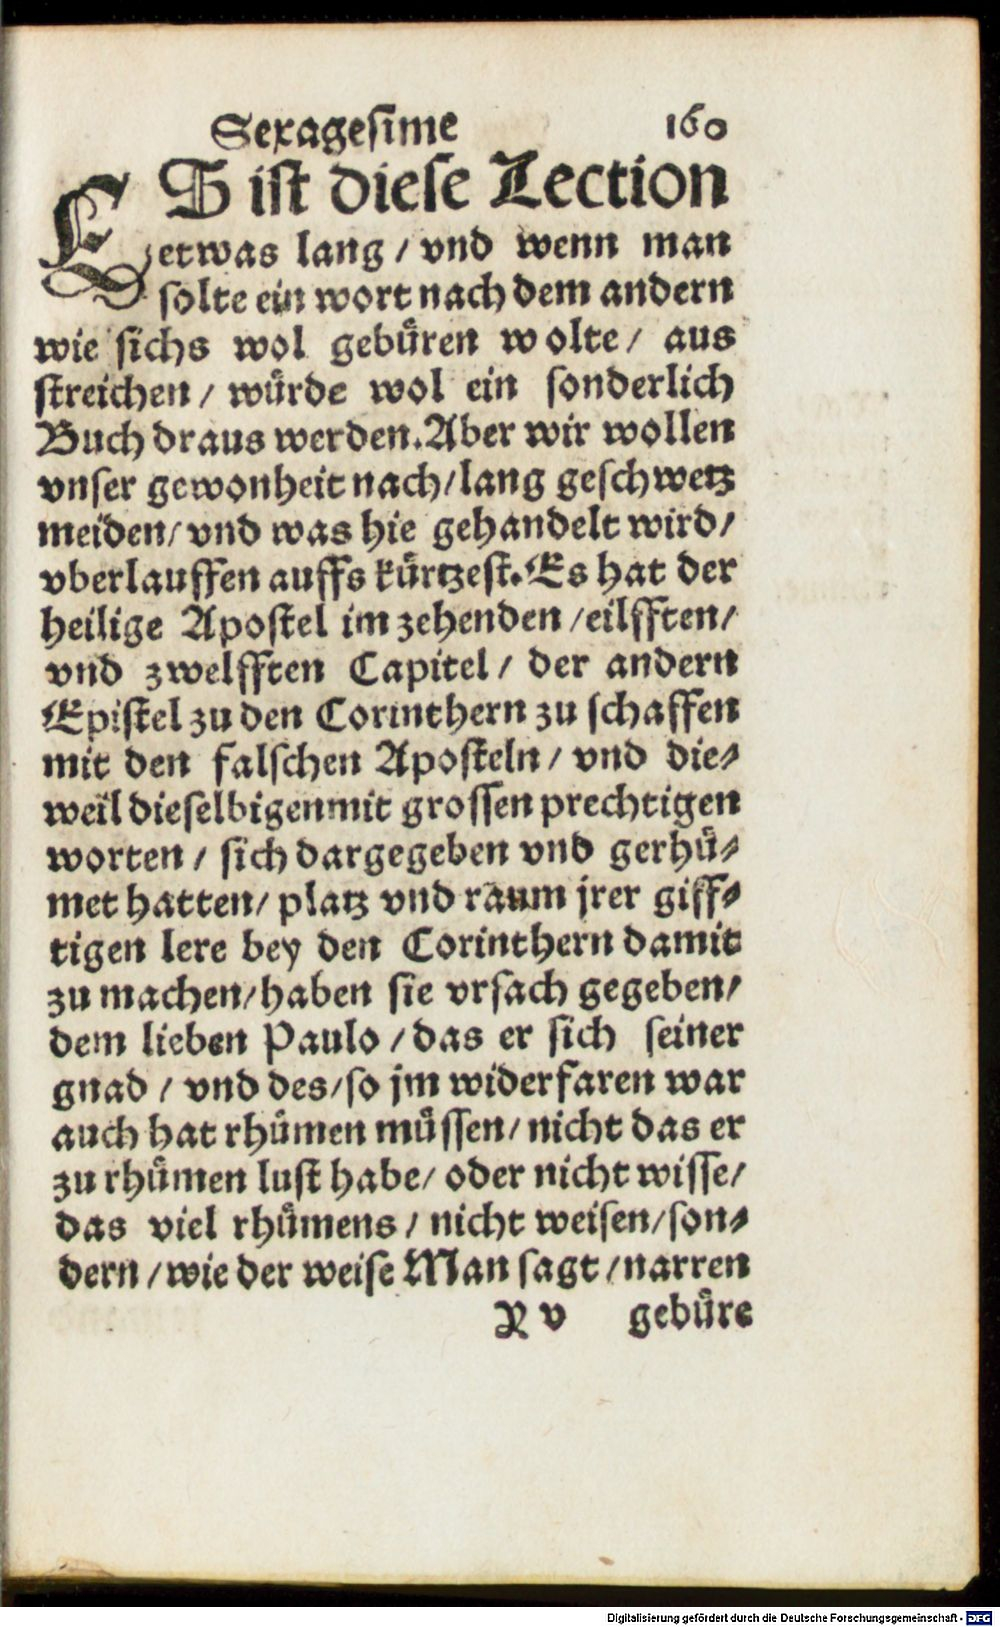 Sexagesime 160
ES ist diese Lection
etwas lang / vnd wenn man
solte ein wort nach dem andern
wie sichs wol gebůren wolte / aus
streichen / wůrde wol ein sonderlich
Buch draus werden. Aber wir wollen
vnser gewonheit nach / lang geschwetz
meiden / vnd was hie gehandelt wird /
vberlauffen auffs kůrtzest. Es hat der
heilige Apostel im zehenden / eilfften /
vnd zwelfften Capitel / der andern
Epistel zu den Corinthern zu schaffen
mit den falschen Aposteln / vnd die⸗
weil dieselbigen mit grossen prechtigen
worten / sich dargegeben vnd gerhů⸗
met hatten / platz vnd raum jrer giff⸗
tigen lere bey den Corinthern damit
zu machen / haben sie vrsach gegeben /
dem lieben Paulo / das er sich seiner
gnad / vnd des / so jm widerfaren war
auch hat rhůmen můssen / nicht das er
zu rhůmen lust habe / oder nicht wisse /
das viel rhůmens / nicht weisen / son⸗
dern / wie der weise Man sagt / narren
R v gebůre
Digitalisierung gefördert durch die Deutsche Forschungsgemeinschaft - DFG